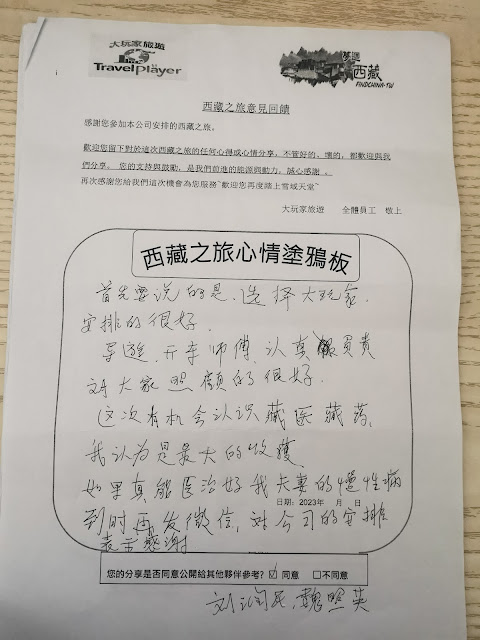 大玩家旅遊
Travelplayer
夢迴
西藏
FINDCHINA-TW
西藏之旅意見回饋
感謝您參加本公司安排的西藏之旅。
歡迎您留下對於這次西藏之旅的任何心得或心情分享，不管好的、壞的，都歡迎與我
們分享。 您的支持與鼓勵，是我們前進的能源與動力，誠心感謝 。
再次感謝您給我們這次機會為您服務~歡迎您再度踏上雪域天堂~
大玩家旅遊 全體員工 敬上
西藏之旅心情塗鴉板
首先要说的是、选择大玩家、
安排的很好.
导遊、开车师傅、认真負責
对大家照顧的很好.
这次有机会认识藏医藏药、
我认为是最大的收穫
如果真能医治好我夫妻的慢性病
日期: 2023年 月 日
到时再发微信，对公司的安排
表示感謝
您的分享是否同意公開給其他夥伴參考? ☑ 同意 □不同意
刘 民、魏照英